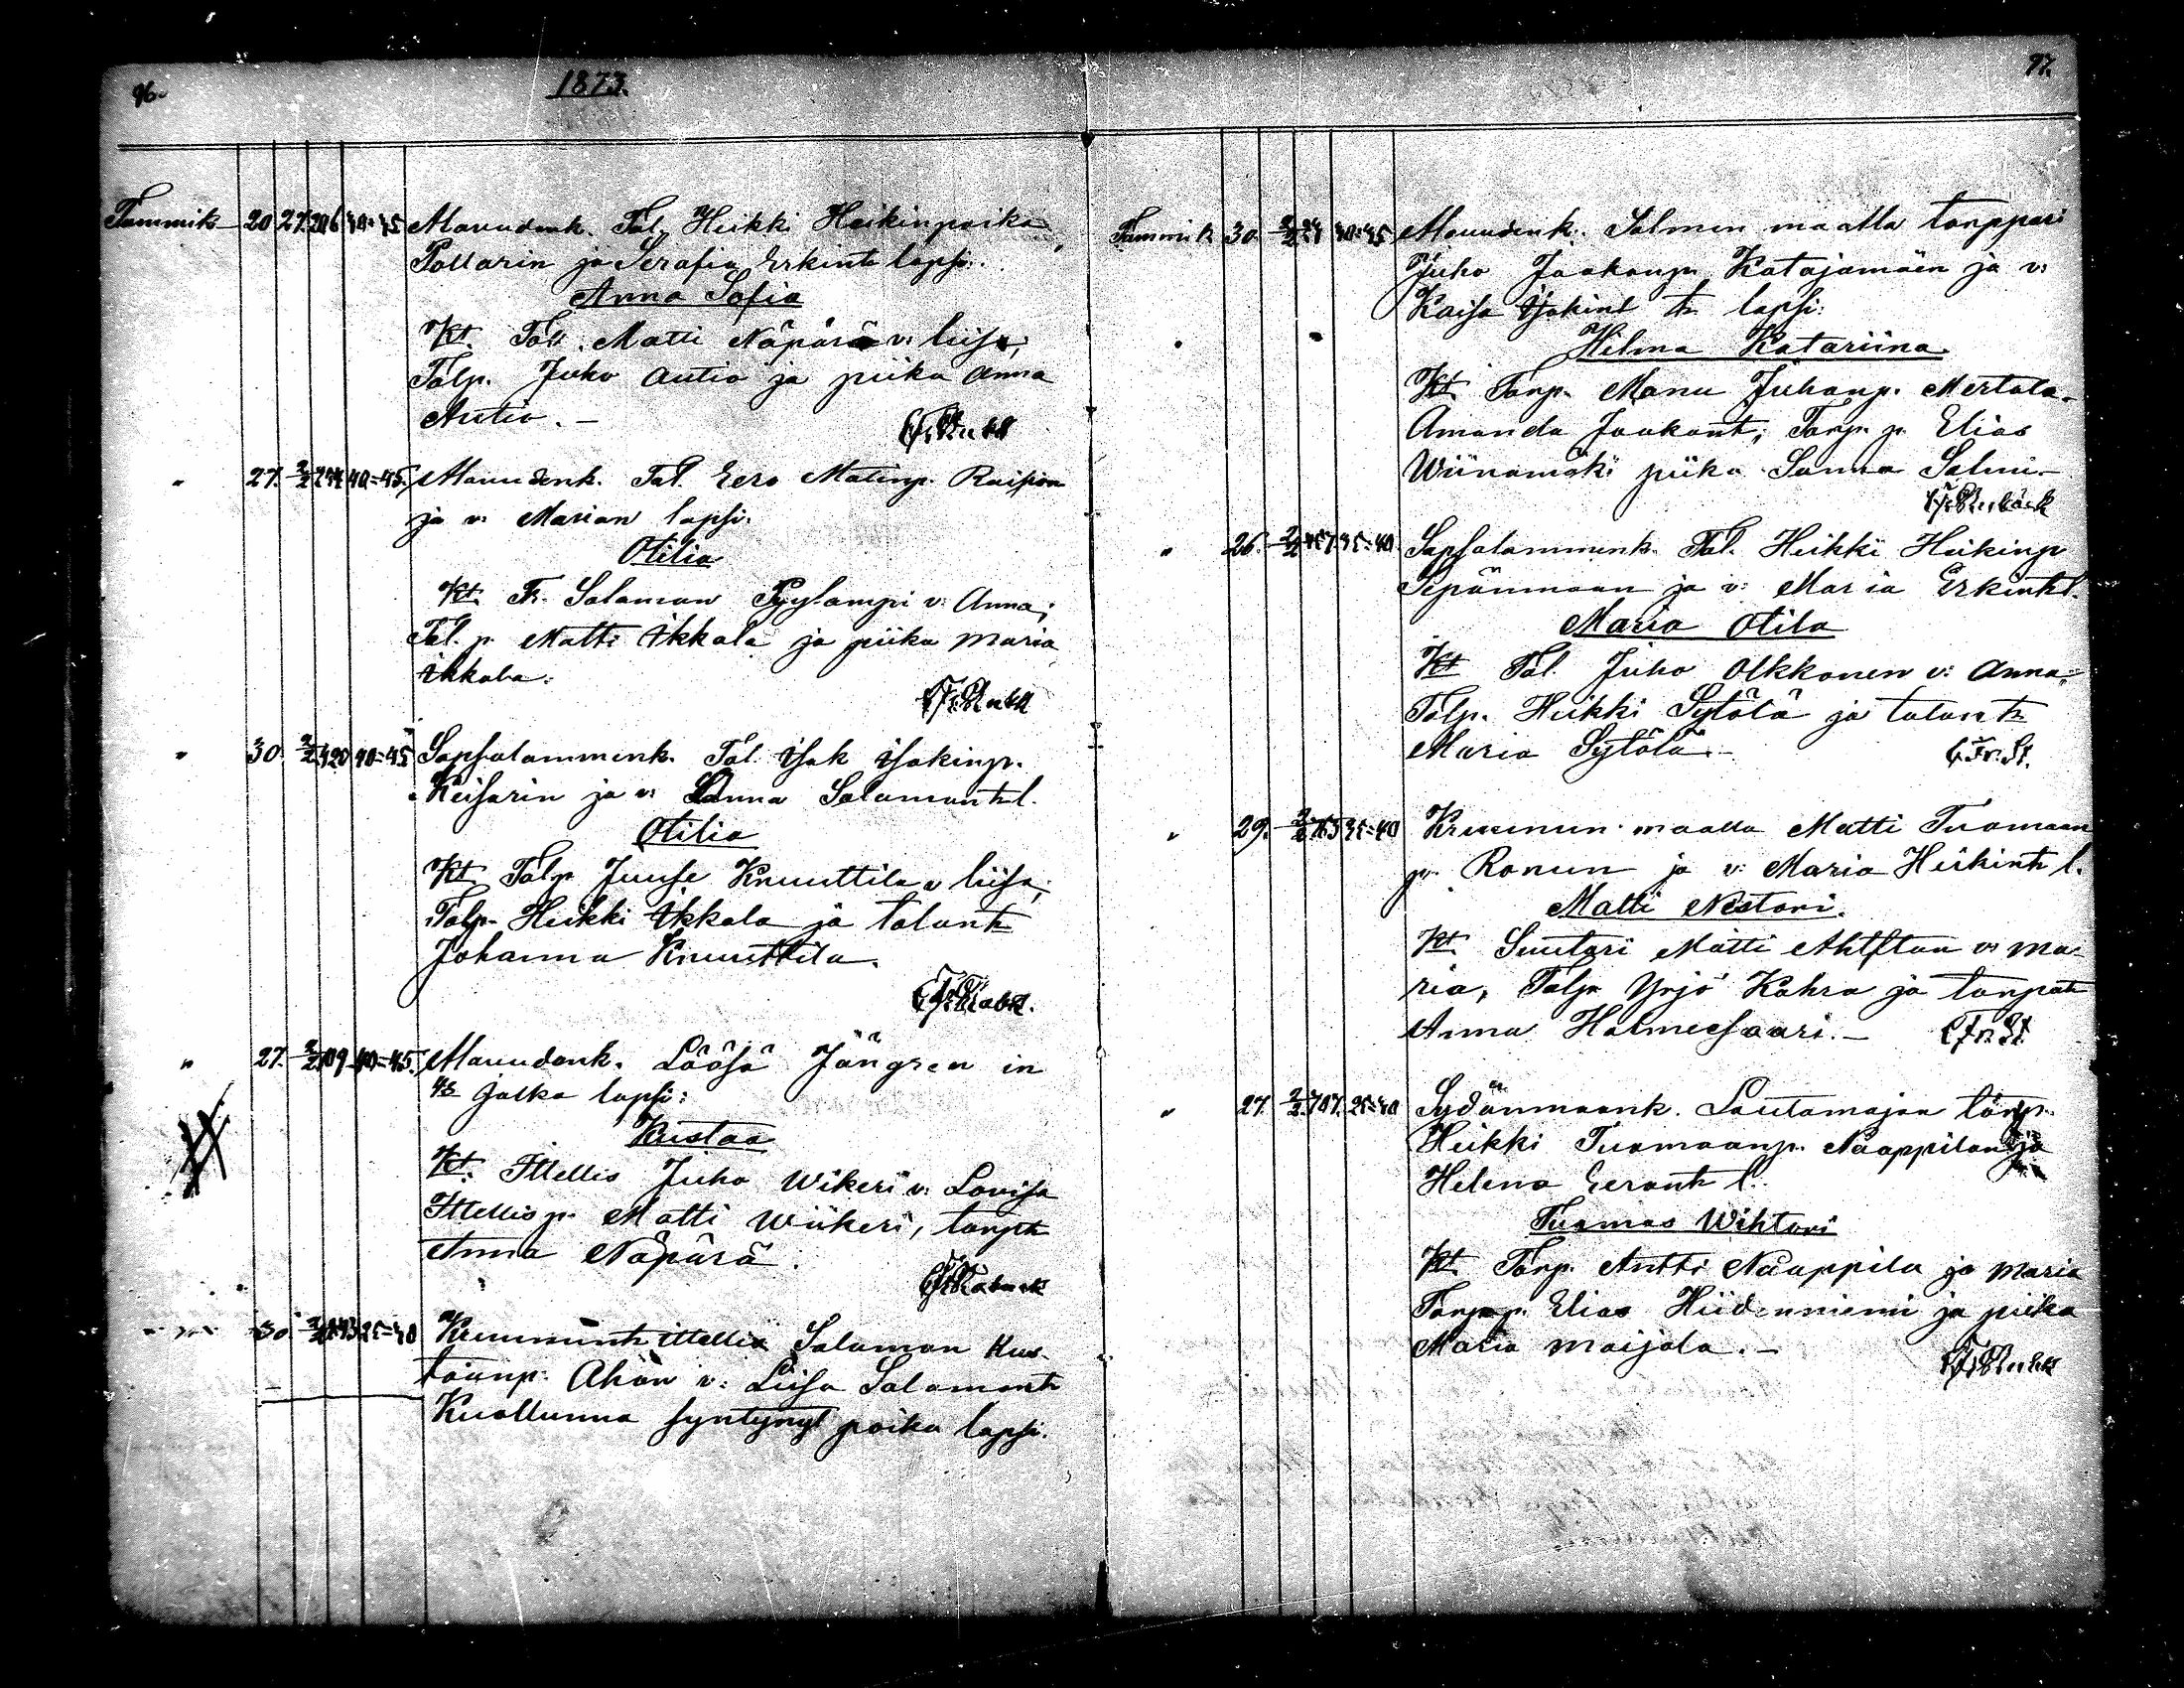 96.
1873.
Tammik 20 27. 206 40=45 Alavudenk. Tal. Heikki Heikinpoika
Pollarin ja Serafia Erkint lapsi.
Anna Sofia
Kt. Tal. Matti Näpärä v: liisa;
Talp. Juho Autio ja piika Anna
Autio.–
" 27. 2/2 244 40=45. Alavudenk. Tal. Eero Matinp. Raision
ja v: Marian lapsi.
Otilia
Kt. Tr. Salamon Pyylampi v: Anna;
Tal. p. Matti Ikkala ja piika Maria
Ikkala.
" 30. 2/2 420 40=45 Sapsalammenk. Tal. Isak Isakinp.
Keisarin ja v: Sanna Salamont l.
Otilia
Kt. Talp. Juuse Knuuttila v liisa;
Talp. Heikki Ikkala ja talont
Johanna Knuuttila.
" 27. 2/2 109 40=45. Alavudenk. Löösä Jängren in
jalka lapsi:
Kustaa
Kt. Ittellis Juho Wikeri v: Lovisa
Ittellis p. Matti Wiikeri, torpt
Anna Näpärä.
30. 35=40 Ittellis Salamon Kus-
taanp. Ahon v: Liisa Salamont
Kuollunna syntynyt poika lapsi.
97.
Tammik 30. 2/2 40=45 Alavudenk. Salmen maalla torppari
Juho Jaakonp. Katajamäen ja v:
Kaisa Isakint tr lapsi:
Hilma Katariina.
Kt. Torp. Manu Juhonp. Mertala.
Amanda Jaakont; Torp. p. Elias
Wiinamäki piika Sanna Salmi.–
" 26. 2/2 457 35=40 Sapsalammenk. Tal. Heikki Heikinp
Sepänmaan ja v: Maria Erkint l.
Maria Otila
Kt Tal. Juho Olkkonen v: Anna;
Talp. Heikki Sytölä ja talont
Maria Sytölä.–
" 29. 2/2 35=40 maalla Matti Tuomaan
p. Ronun ja v: Maria Heikint l.
Matti Nestori.
Kt. Suutari Matti v: Ma-
ria, Talp. Yrjö Kahra ja torpat
Anna Holmesaari.–
" 27. 2/2 707. 35=40 Sydänmaank. Lautamajan torp.
Heikki Tuomaanp. Naappilan ja
Helena Eeront l.
Tuomas Wihtori
Kt. Torp. Antti Naappila ja Maria
Torp. p. Elias Hiidenniemi ja piika
Maria Maijala.–